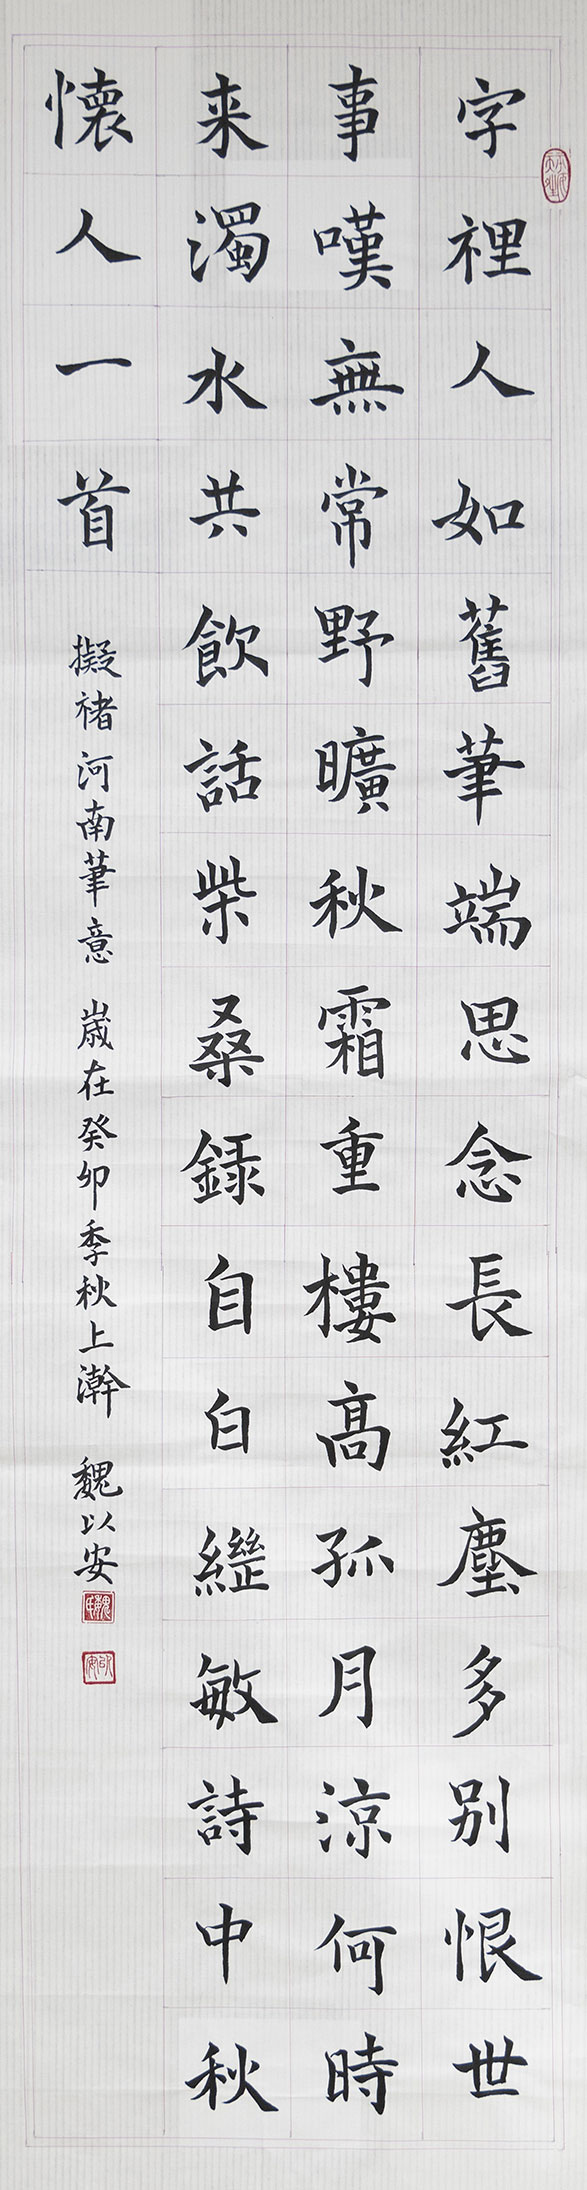 字裡人如舊筆端思念長紅塵多別恨世
事嘆無常野曠秋霜重樓高孤月涼何時
来濁水共飲話柴桑録自白繼敏詩中秋
懷人一首
擬褚河南筆意 歲在癸卯季秋上澣 魏以安